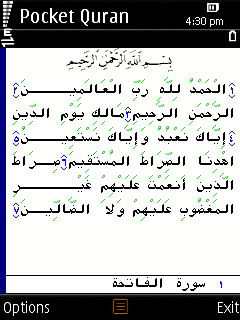 Pocket Quran
4:30 pm
بِسْمِ اللَّهِ الرَّحْمَٰنِ الرَّحِيمِ
١ الْحَمْدُ لِلَّهِ رَبِّ الْعَالَمِيـــنَ ٢
الرَّحْمَنِ الرَّحِيمِ ٣ مَالِكِ يَوْمِ الدِّينِ
٤ إِيَّاكَ نَعْبُدُ وَإِيَّاكَ نَسْتَعِيـنُ ٥
اهْدِنَا الصِّرَاطَ الْمُسْتَقِيمَ ٦ صِرَاطَ
الَّذِينَ أَنْعَمْتَ عَلَيْهِمْ غَيْــــرِ
الْمَغْضُوبِ عَلَيْهِمْ وَلاَ الضَّالِّيـنَ ٧
١ سورة الفاتحة
Options
Exit